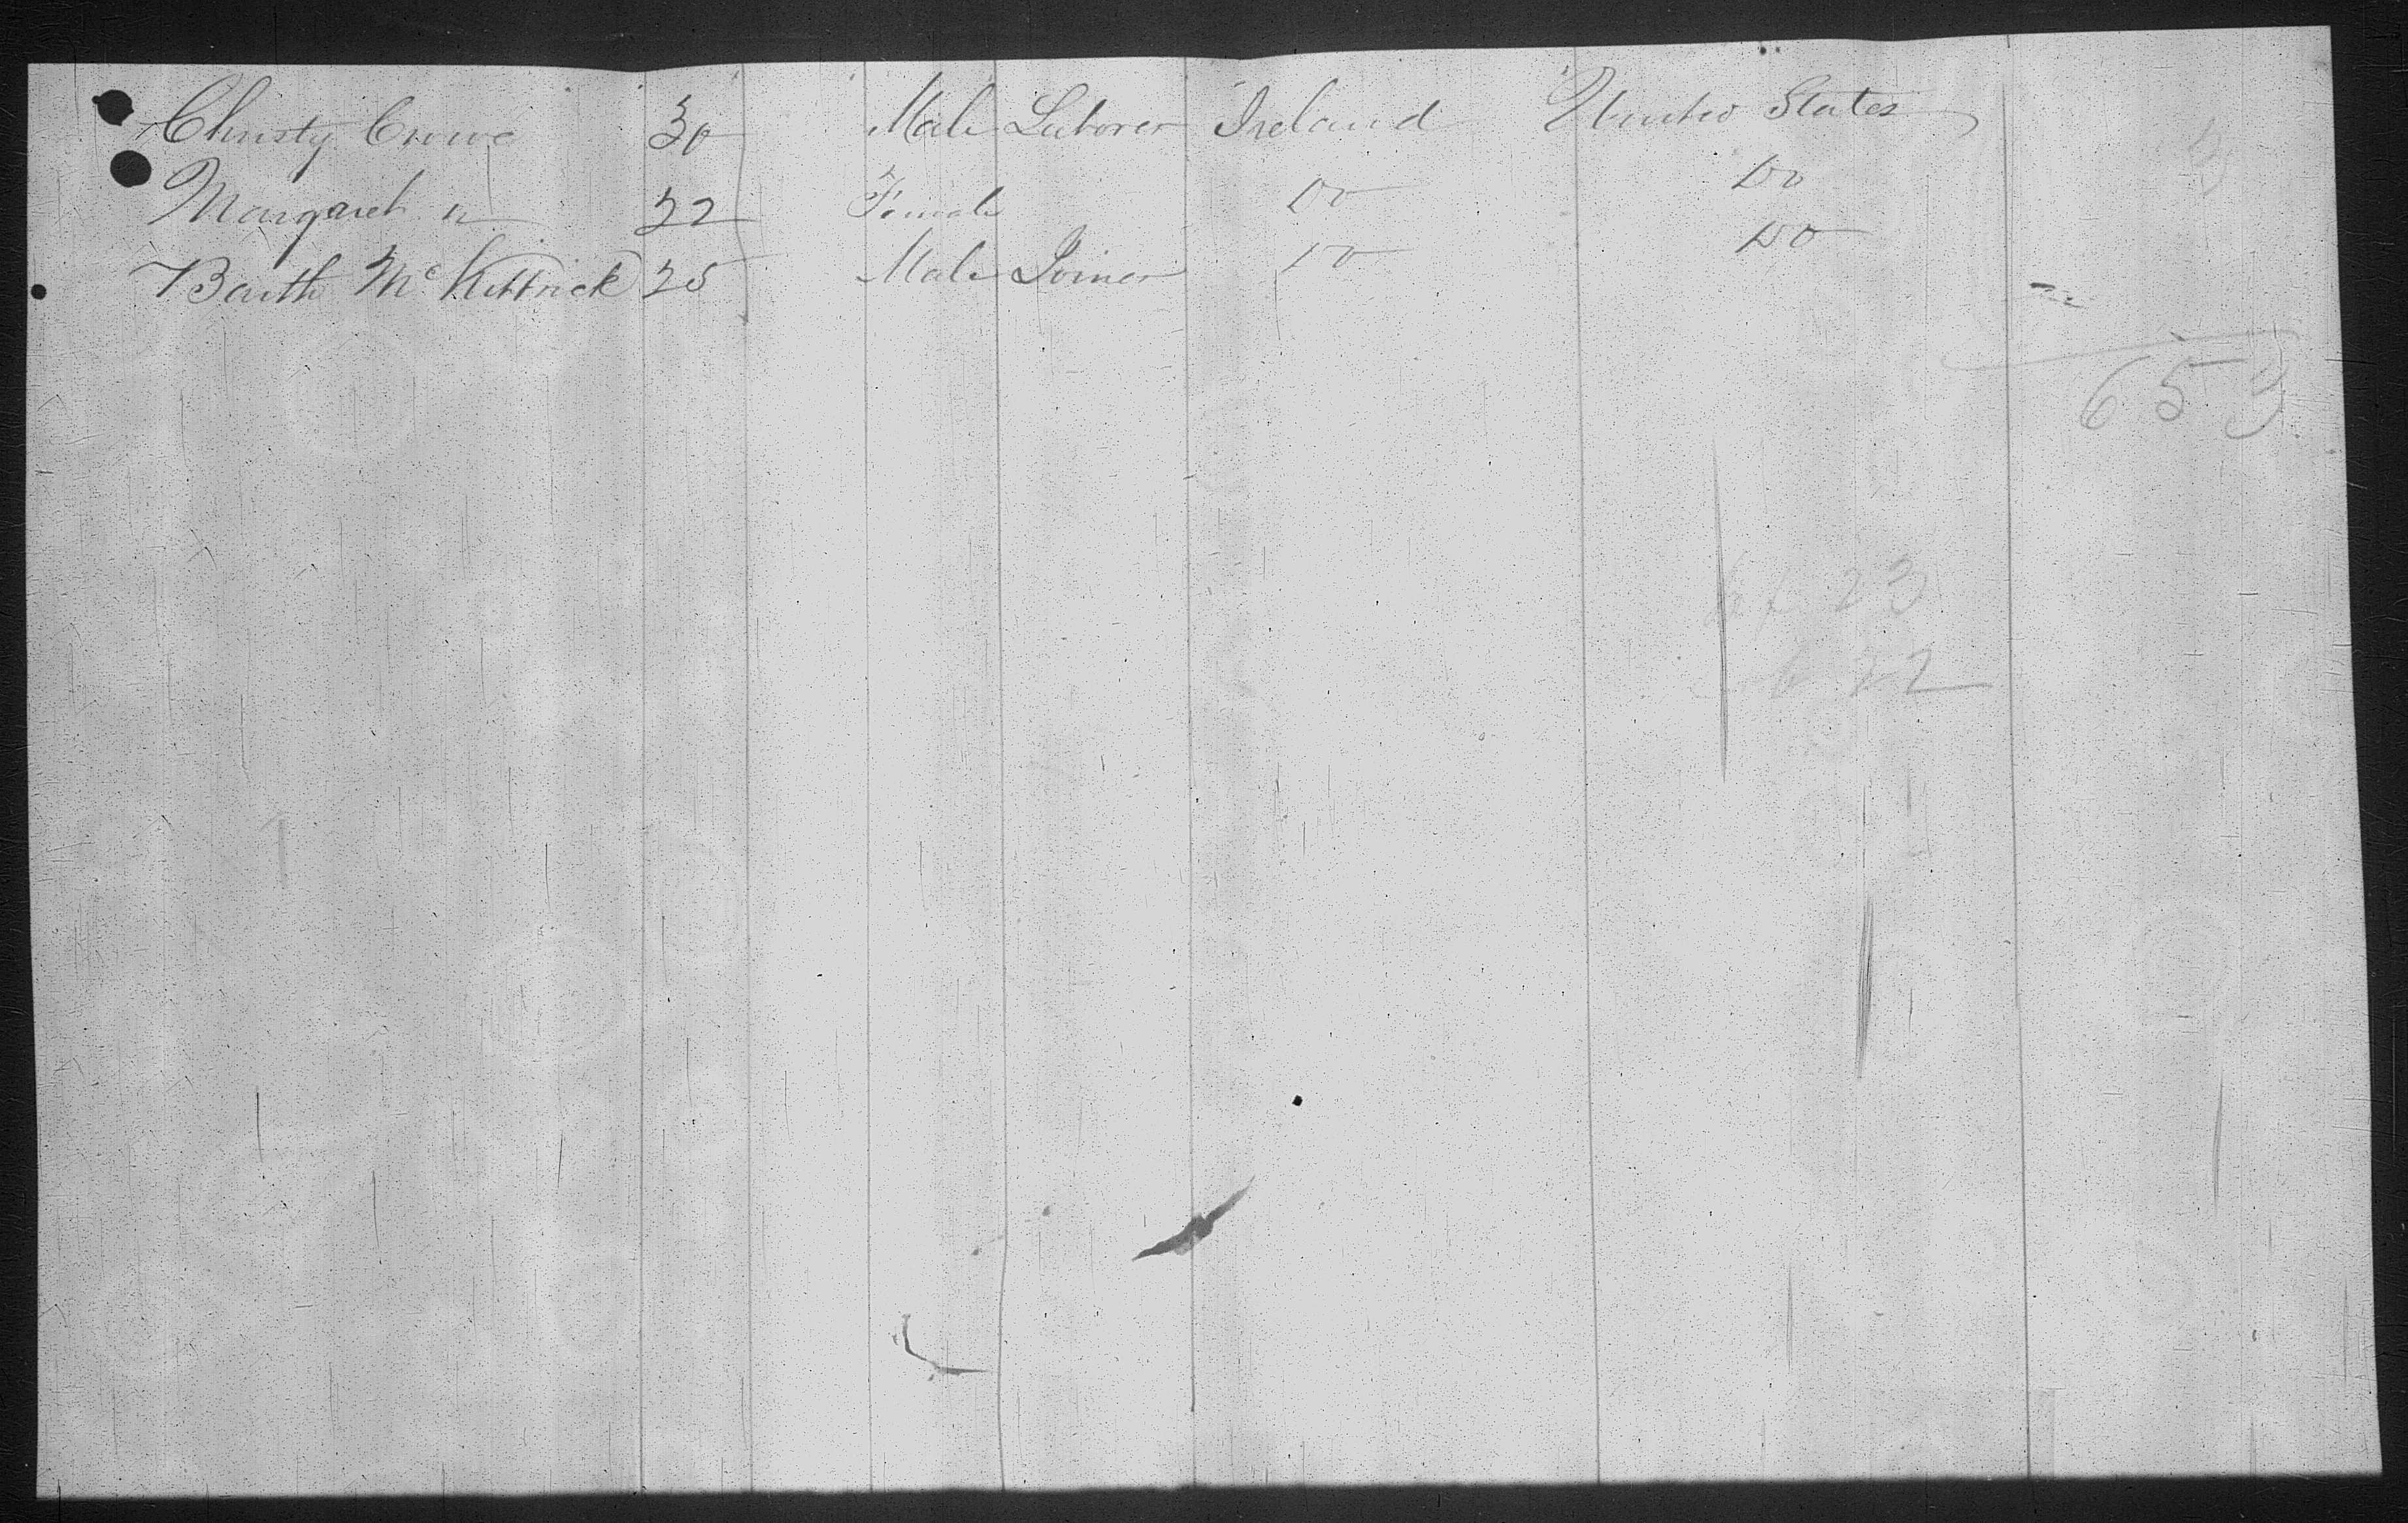 Christy Crowe 30 Male Laborer Ireland United States
Margaret " 22 Female Do Do
Barth McKittrick 25 Male Joiner Do Do
653
23
22